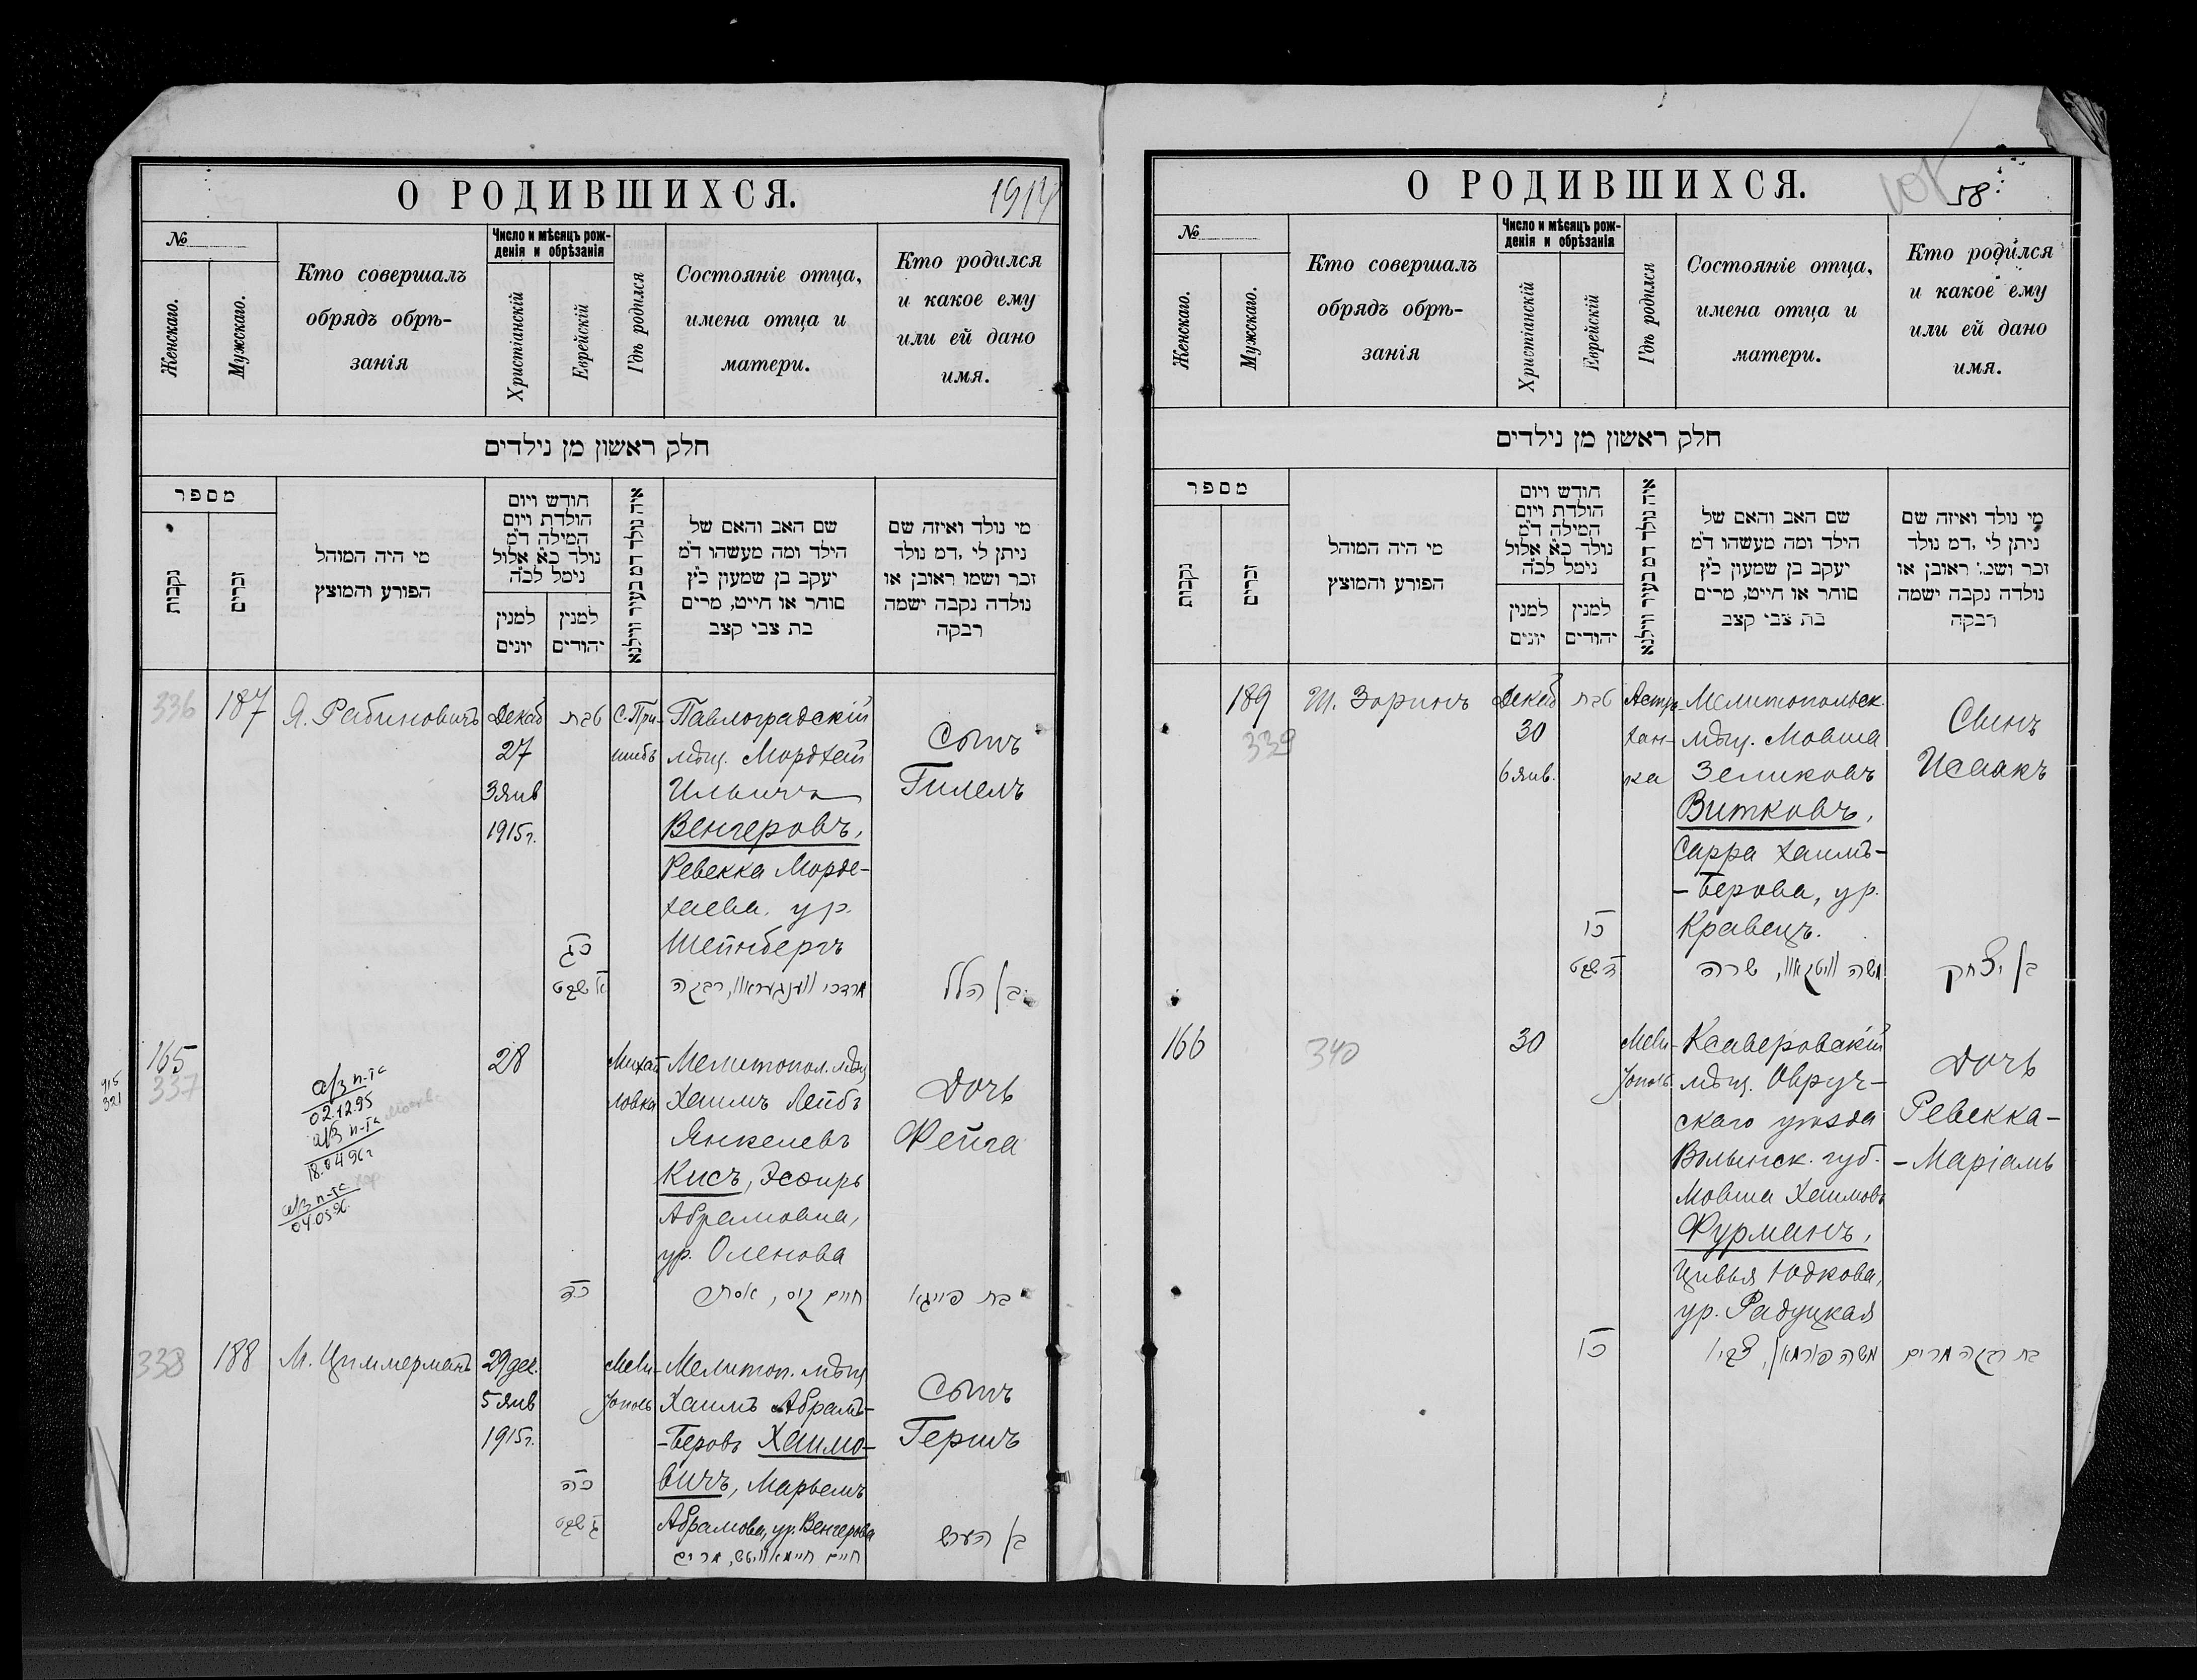 О РОДИВШИХСЯ.
1914
№
Женскаго.
Мужскаго.
Кто совершалъ
обрядъ обрѣ-
занія
Число и мѣсяцъ рож-
денія и обрѣзанія
Христіанскій
Еврейскій
Гдѣ родился
Состояніе отца,
имена отца и
матери.
Кто родился
и какое ему
или ей дано
имя.
חלק ראשון מן נילדים
מספר
נקבות
זכרים
מי היה המוהל
הפורע והמוצץ
חודש ויום
הולדת ויום
המילה ד״מ
נולד כ״א אלול
נימל לכ״ה
למנין
יונים
למנין
יהודים
איה נולד דמ בעיר ווילנא
שם האב והאם של
הילד ומה מעשהו ד״מ
יעקב בן שמעון כ״ץ
סוחר או חייט, מרים
בת צבי קצב
מי נולד ואיזה שם
ניתן לי ,דמ נולד
זכר ושמו ראובן או
נולדה נקבה ישמה
רבקה
336 187 Я. Рабиновичъ Декаб טבת С. При- Павлоградскій
27 шибъ мѣщ. Мордхай Сынъ
3 янв Ильичъ Гилелъ
1915 г. Венгеровъ,
Ревекка Морде-
хаева, ур.
כג Шейнбергъ
א שבט מרדכי ווענגעראוו, רבקה בן הלל
165 28 Михай- Мелитопол. мѣщ
915
321
337 ловка Хаимъ Лейбъ Дочь
Янкелевъ Фейга
Кисъ, Эсѳирь
Абрамовна,
ур. Оленова
а/з п-та
02.12.95
а/з п-та Москва
18.04.96 г
а/з п-та хар.
04.05.96
כד חיים קיס, אסתר בת פייגא
338 188 М. Циммерманъ 29 дек. Мели- Мелитоп. мѣщ
5 янв тополь Хаимъ Абрамъ- Сынъ
1915 г. -Беровъ Хаимо- Гершъ
כה вичъ, Марьемъ
ג שבט Абрамова, ур. Венгерова
חיים חיימאוויטש, מרים בן הערש
О РОДИВШИХСЯ.
58
№
Женскаго.
Мужскаго.
Кто совершалъ
обрядъ обрѣ-
занія
Число и мѣсяцъ рож-
денія и обрѣзанія
Христіанскій
Еврейскій
Гдѣ родился
Состояніе отца,
имена отца и
матери.
Кто родился
и какое ему
или ей дано
имя.
חלק ראשון מן נילדים
מספר
נקבות
זכרים
מי היה המוהל
הפורע והמוצץ
חודש ויום
הולדת ויום
המילה ד״מ
נולד כ״א אלול
נימל לכ״ה
למנין
יונים
למנין
יהודים
איה נולד דמ בעיר ווילנא
שם האב והאם של
הילד ומה מעשהו ד״מ
יעקב בן שמעון כ״ץ
סוחר או חייט, מרים
בת צבי קצב
מי נולד ואיזה שם
ניתן לי ,דמ נולד
זכר ושמו ראובן או
נולדה נקבה ישמה
רבקה
189 Ш. Зоринъ Декаб טבת Астра- Мелитопольск.
339 30 хан- мѣщ. Мовша Сынъ
6 янв. ка Зеликовъ Исаакъ
Витковъ,
Сарра Хаимъ-
-Берова, ур.
כו Кравецъ.
ד שבט משה וויטקאוו, שרה בן יצחק
166 340 30 Мели- Ксаверовскій
тополь мѣщ. Овруч- Дочь
скаго уѣзда Ревекка-
Волынск. губ. -Маріамъ
Мовша Хаимовъ
Фурманъ,
Цивья Юдкова,
ур. Радуцкая
כו משה פורמאן, צביו בת רבקה מרים